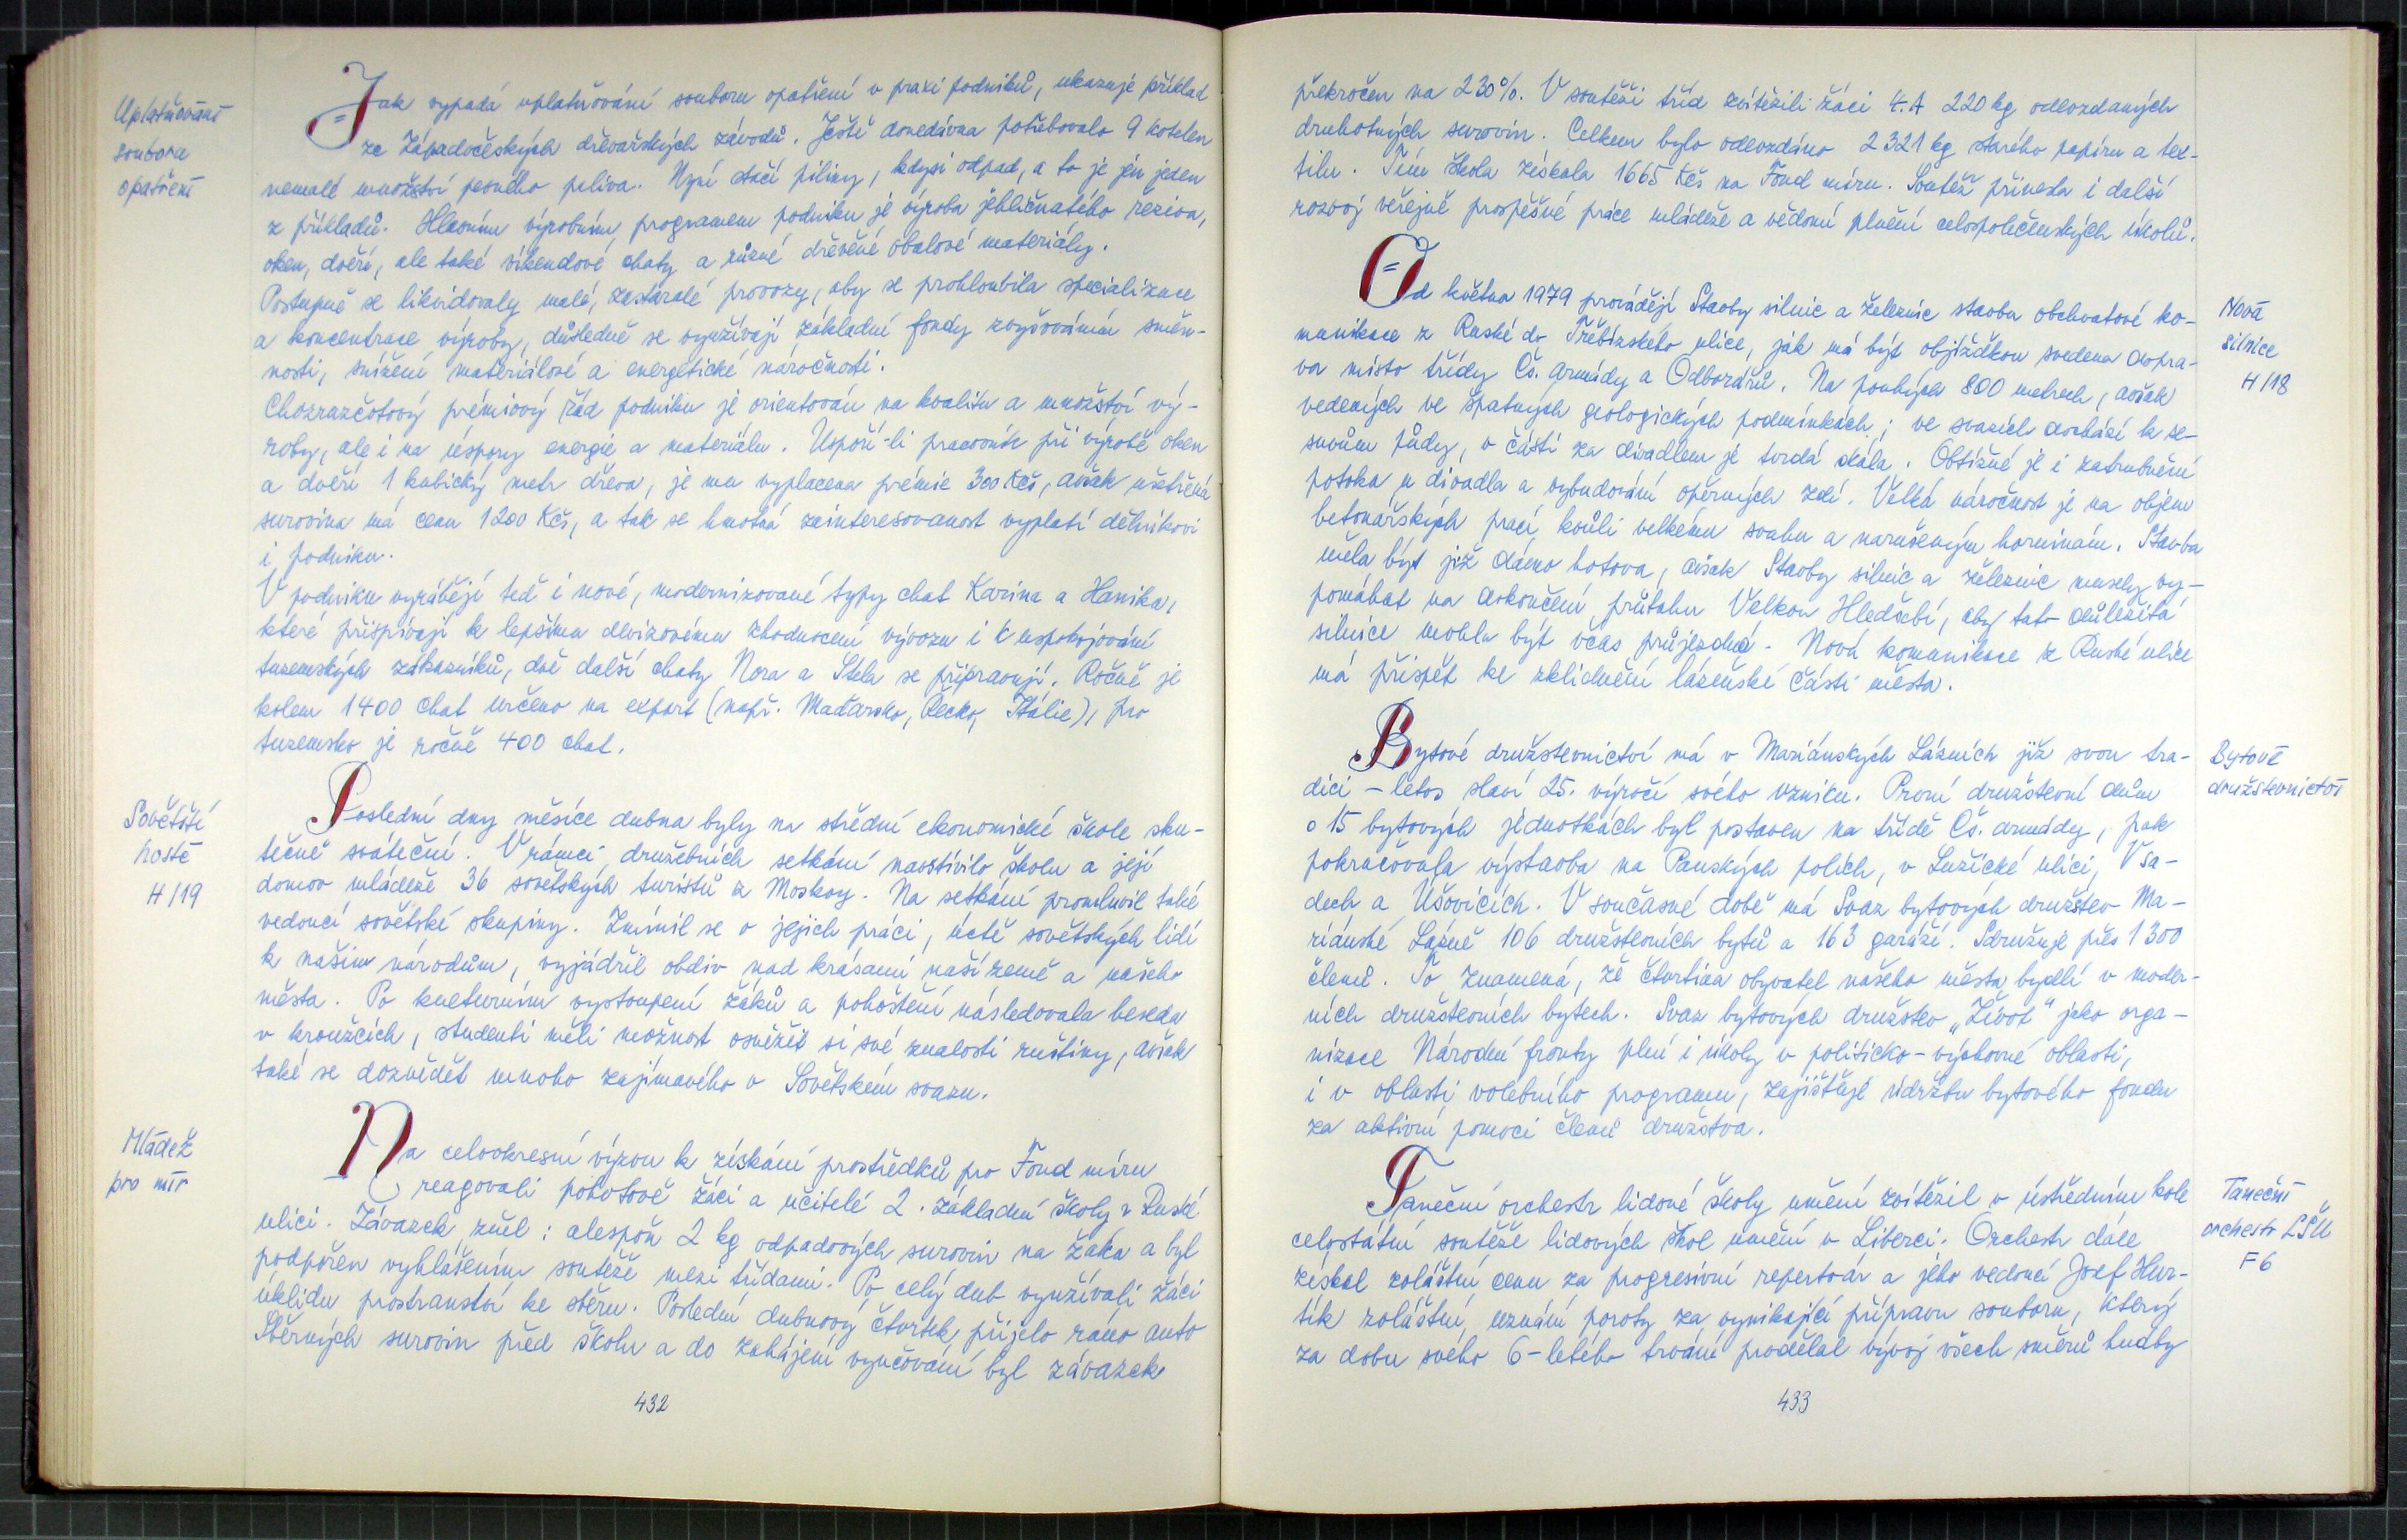 Uplatňování
souboru
opatření
Jak vypadá uplatňování souboru opatření v praxi podniků, ukazuje příklad
ze Západočeských dřevařských závodů. Ještě donedávna potřebovalo 9 kotelen
nemalé množství pevného paliva. Nyní stačí piliny, kdysi odpad, a to je jen jeden
z příkladů. Hlavním výrobním programem podniku je výroba jehličnatého reziva,
oken, dveří, ale také víkendové chaty a různé dřevěné obalové materiály.
Postupně se likvidovaly malé, zastaralé provozy, aby se prohloubila specializace
a koncentrace výroby, důsledně se využívají základní fondy zvyšováním směn-
nosti, snížení materiálové a energetické náročnosti.
Chozrazčotový prémiový řád podniku je orientován na kvalitu a množství vý-
roby, ale i na úspory energie a materiálu. Uspoří-li pracovník při výrobě oken
a dveří 1 kubický metr dřeva, je mu vyplacena prémie 300 Kčs, avšak ušetřená
surovina má cenu 1200 Kčs, a tak se hmotná zainteresovanost vyplatí dělníkovi
i podniku.
V podniku vyrábějí teď i nové, modernizované typy chat Karina a Hanika,
které přispívají k lepšímu devizovému zhodnocení vývozu i k uspokojování
tuzemských zákazníků, dvě další chaty Nora a Stela se připravují. Ročně je
kolem 1400 chat určeno na export (např. Maďarsko, Řecko, Itálie), pro
tuzemsko je ročně 400 chat.
Sovětští
hosté
H/19
Poslední dny měsíce dubna byly na střední ekonomické škole sku-
tečně sváteční. V rámci družebních setkání navštívilo školu a její
domov mládeže 36 sovětských turistů z Moskvy. Na setkání promluvil také
vedoucí sovětské skupiny. Zmínil se o jejich práci, úctě sovětských lidí
k našim národům, vyjádřil obdiv nad krásami naší země a našeho
města. Po kulturním vystoupení žáků a pohoštění následovala beseda
v kroužcích, studenti měli možnost osvěžit si své znalosti ruštiny, avšak
také se dozvědět mnoho zajímavého o Sovětském svazu.
Mládež
pro mír
Na celookresní výzvu k získání prostředků pro Fond míru
reagovali pohotově žáci a učitelé 2. základní školy v Ruské
ulici. Závazek zněl: alespoň 2 kg odpadových surovin na žáka a byl
podpořen vyhlášením soutěže mezi třídami. Po celý dub využívali žáci
úklidu prostranství ke sběru. Poslední dubnový čtvrtek přijelo ráno auto
Sběrných surovin před školu a do zahájení vyučování byl závazek
432
překročen na 230%. V soutěži tříd zvítězili žáci 4.A 220 kg odevzdaných
druhotných surovin. Celkem bylo odevzdáno 2321 kg starého papíru a tex-
tilu. Tím škola získala 1665 Kčs na Fond míru. Soutěž přinesla i další
rozvoj veřejně prospěšné práce mládeže a vědomí plnění celospolečenských úkolů.
Nová
silnice
H/18
Od května 1979 provádějí Stavby silnic a železnic stavbu obchvatové ko-
munikace z Ruské do Třebízského ulice, jak má být objížďkou svedena dopra-
va místo třídy Čs. armády a Odborářů. Na pouhých 800 metrech, avšak
vedených ve špatných geologických podmínkách; ve svazích dochází k se-
suvům půdy, v části za divadlem je tvrdá skála. Obtížné je i zatrubnění
potoka u divadla a vybudování opěrných zdí. Velká náročnost je na objem
betonářských prací kvůli velkému svahu a narušeným horninám. Stavba
měla být již dávno hotova, avšak Stavby silnic a železnic musely vy-
pomáhat na dokončení průtahu Velkou Hleďsebí, aby tato důležitá
silnice mohla být včas průjezdná. Nová komunikace z Ruské ulice
má přispět ke zklidnění lázeňské části města.
Bytové
družstevnictví
Bytové družstevnictví má v Mariánských Lázních již svou tra-
dici – letos slaví 25. výročí svého vzniku. První družstevní dům
o 15 bytových jednotkách byl postaven na třídě Čs. armády, pak
pokračovala výstavba na Panských polích, v Lužické ulici, V sa-
dech a Úšovicích. V současné době má Svaz bytových družstev Ma-
riánské Lázně 106 družstevních bytů a 163 garáží. Sdružuje přes 1300
členů. To znamená, že čtvrtina obyvatel našeho města bydlí v moder-
ních družstevních bytech. Svaz bytových družstev „Život" jako orga-
nizace Národní fronty plní i úkoly v politicko-výchovné oblasti,
i v oblasti volebního programu, zajišťuje údržbu bytového fondu
za aktivní pomoci členů družstva.
Taneční
orchestr LŠU
F6
Taneční orchestr lidové školy umění zvítězil v ústředním kole
celostátní soutěže lidových škol umění v Liberci. Orchestr dále
získal zvláštní cenu za progresivní repertoár a jeho vedoucí Josef Hur-
tík zvláštní uznání poroty za vynikající přípravu souboru, který
za dobu svého 6-letého trvání prodělal vývoj všech směrů hudby
433